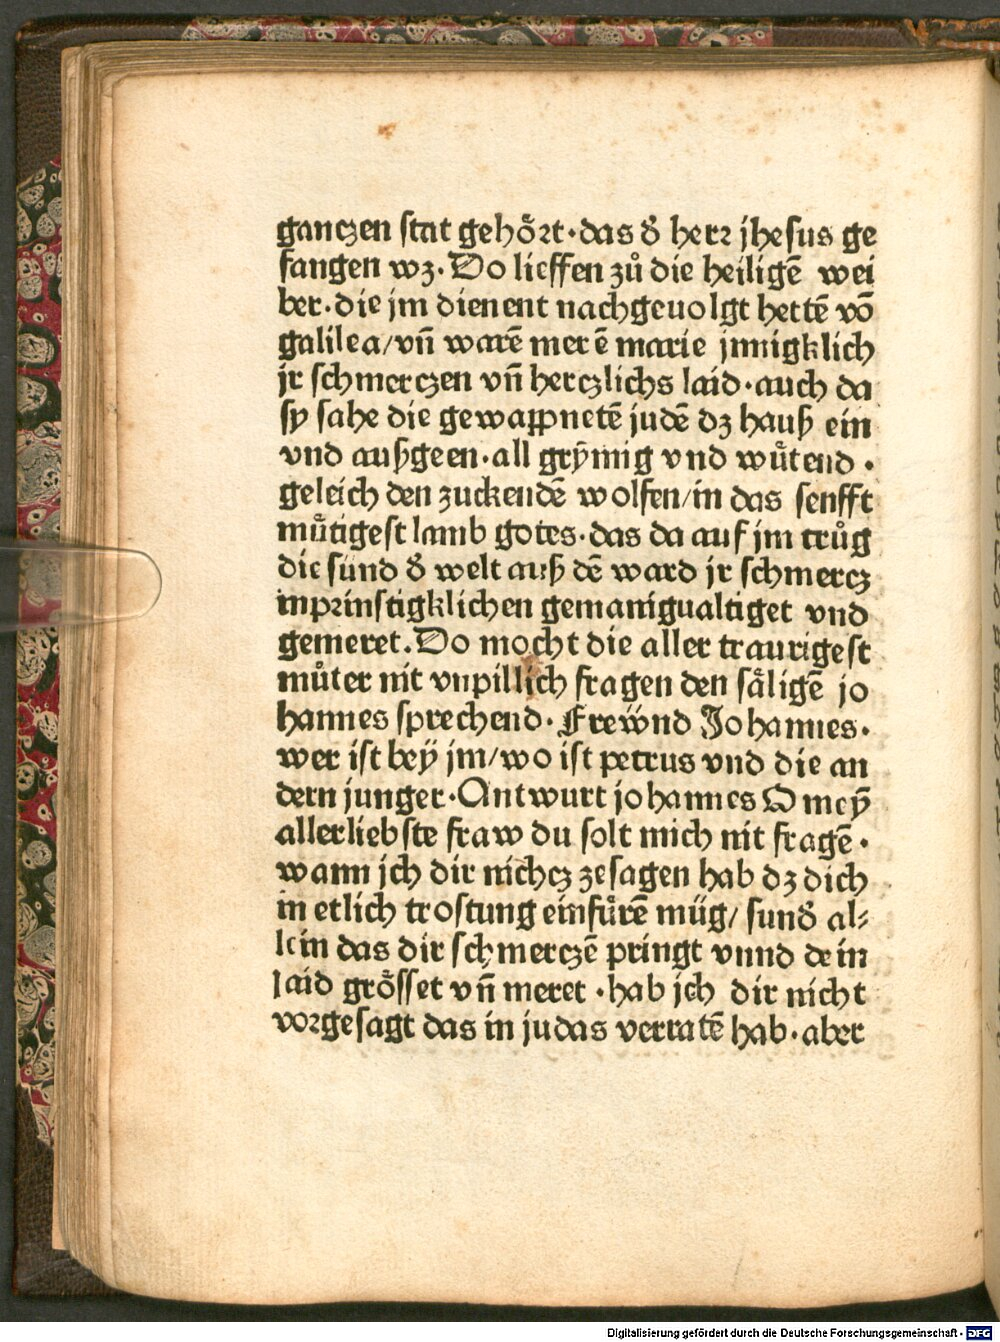 ganczen stat gehoͤrt·das d̕ herr jhesus ge
fangen wz·Do lieffen zuͦ die heiligē wei
ber·die jm dienent nachgeuolgt hettē vō
galilea/vn̄ warē merē marie jnnigklich
jr schmerczen vn̄ herczlichs laid·auch da
sy sahe die gewappnetē judē dz hauß ein
vnd außgeen·all grȳmig vnd wuͤtend·
geleich den zuckendē wolfen/in das senfft
muͤtigest lamb gotes·das da auf jm truͦg
die sünd d̕ welt auß dē ward jr schmercz
inprinstigklichen gemanigualtiget vnd
gemeret.Do mocht die aller traurigest
muͦter nit vnpillich fragen den saͤligē jo
hannes sprechend·Freẅnd Johannes·
wer ist beÿ jm/wo ist petrus vnd die an
dern junger·Antwurt johannes O meȳ
allerliebste fraw du solt mich nit fragē·
wann jch dir nichcz zesagen hab dz dich
in etlich trostung einfuͤrē müg/sund̕ al⸗
lein das dir schmerczē pringt vnnd dein
laid groͤsset vn̄ meret·hab jch dir nicht
vorgesagt das in judas verratē hab·aber
Digitalisierung gefördert durch die Deutsche Forschungsgemeinschaft - DFG